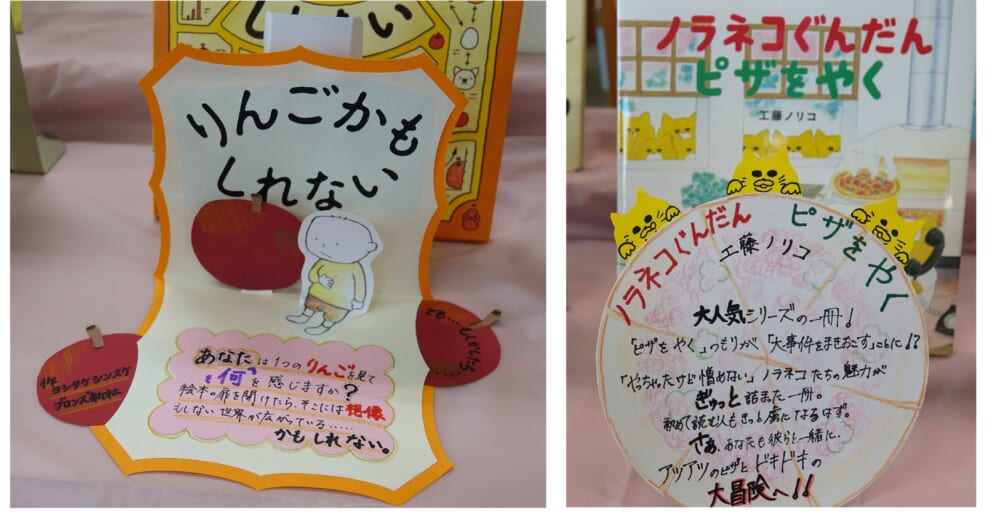 しない
りんごかも
しれない
作
ヨシタケシンスケ
ブロンズ新社
でも…
もしかしたら
……
あなたは1つのりんごを見て
何を感じますか?
絵本の扉を開けたら、そこには想像
もしない世界が広がっている……
かもしれない。
ノラネコぐんだん
ピザをやく
工藤ノリコ
ノラネコぐんだん ピザをやく
工藤ノリコ
大人気シリーズの一冊!
「ピザを やく」つもりが 「大事件をまきおこす」ことに!?
「やっちゃたけど憎めない」ノラネコたちの魅力が
ぎゅっと 詰また一冊。
初めて読む人もきっと虜になるはず。
さぁ、あなたも彼らと一緒に、
アツアツのピザと ドキドキの
大冒険へ!!